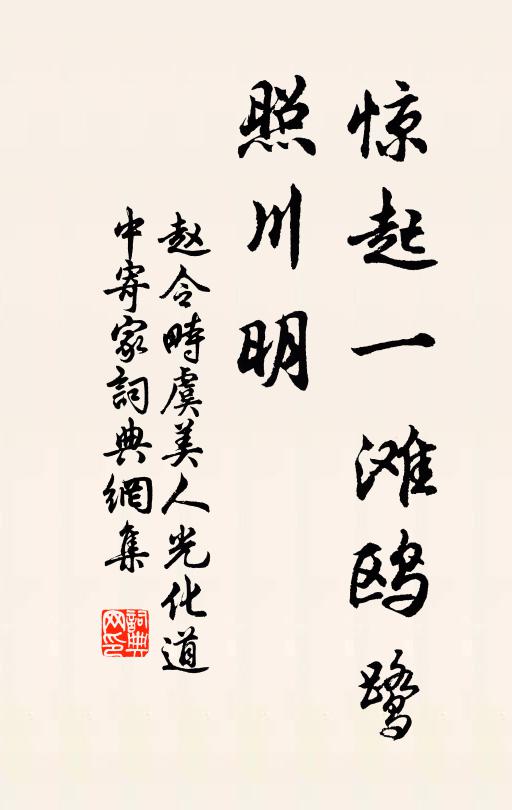 惊起一滩鸥鹭
照川明
赵令畤虞美人光化道
中寄家詞典網集
詞典
网印